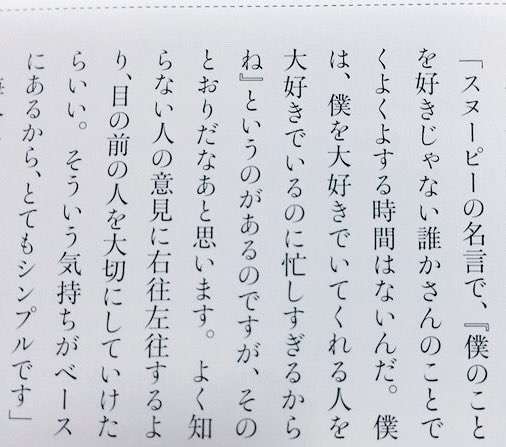 「スヌーピーの名言で、『僕のこと
を好きじゃない誰かさんのことで
くよくよする時間はないんだ。僕
は、僕を大好きでいてくれる人を
大好きでいるのに忙しすぎるから
ね』というのがあるのですが、その
とおりだなあと思います。よく知
らない人の意見に右往左往するよ
り、目の前の人を大切にしていけた
らいい。そういう気持ちがベース
にあるから、とてもシンプルです」